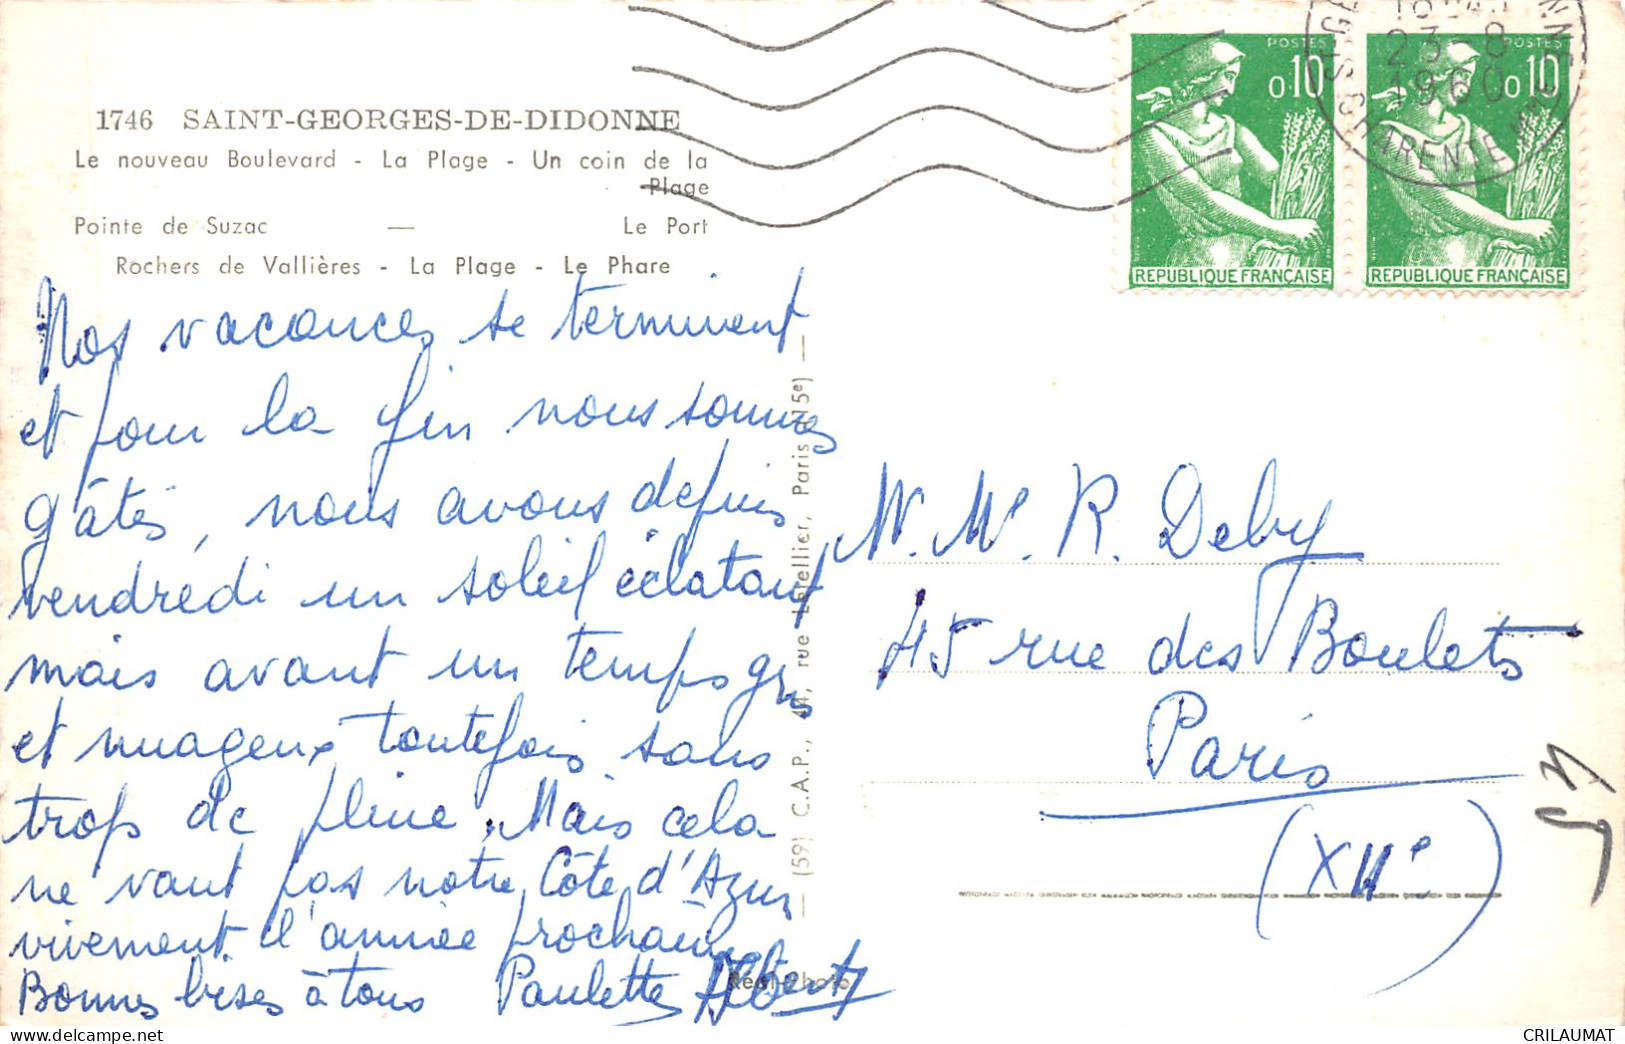 1746 SAINT-GEORGES-DE-DIDONNE
Le nouveau Boulevard - La Plage - Un coin de la
Plage
Pointe de Suzac — Le Port
Rochers de Vallières - La Plage - Le Phare
Nos vacances se terminent
et pour la fin nous sommes
gâtés, nous avons depuis
vendredi un soleil éclatant
mais avant un temps gris
et nuageux toutefois sans
trop de pluie. Mais cela
ne vaut pas notre Côte d'Azur
vivement l'année prochaine
Bonnes bises à tous Paulette Albert
— (59) C.A.P., 44, rue Letellier, Paris (15e) —
Réal-Photo
POSTES
0,10
REPUBLIQUE FRANÇAISE
POSTES
0,10
REPUBLIQUE FRANÇAISE
23-8
1960
CHARENTE
M. Me R. Deby
45 rue des Boulets
Paris
(XIIe)
CRILAUMAT